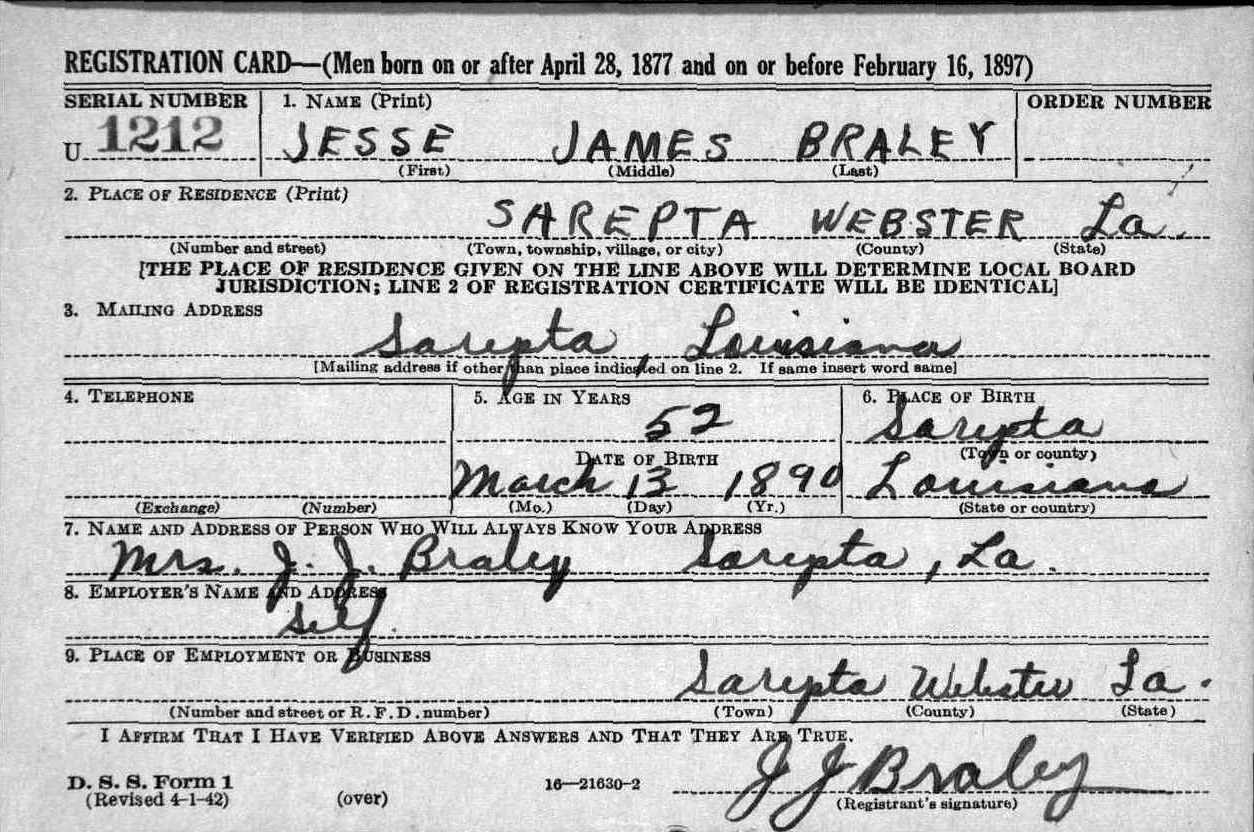 REGISTRATION CARD—(Men born on or after April 28, 1877 and on or before February 16, 1897)
SERIAL NUMBER 1. NAME (Print) ORDER NUMBER
U 1212 JESSE JAMES BRALEY
(First) (Middle) (Last)
2. PLACE OF RESIDENCE (Print)
SAREPTA WEBSTER La.
(Number and street) (Town, township, village, or city) (County) (State)
[THE PLACE OF RESIDENCE GIVEN ON THE LINE ABOVE WILL DETERMINE LOCAL BOARD
JURISDICTION; LINE 2 OF REGISTRATION CERTIFICATE WILL BE IDENTICAL]
3. MAILING ADDRESS
Sarepta, Louisiana
[Mailing address if other than place indicated on line 2. If same insert word same]
4. TELEPHONE 5. AGE IN YEARS 6. PLACE OF BIRTH
52 Sarepta
DATE OF BIRTH (Town or county)
March 13 1890 Louisiana
(Exchange) (Number) (Mo.) (Day) (Yr.) (State or country)
7. NAME AND ADDRESS OF PERSON WHO WILL ALWAYS KNOW YOUR ADDRESS
Mrs. J. J. Braley Sarepta, La.
8. EMPLOYER'S NAME AND ADDRESS
Self.
9. PLACE OF EMPLOYMENT OR BUSINESS
Sarepta Webster La.
(Number and street or R. F. D. number) (Town) (County) (State)
I AFFIRM THAT I HAVE VERIFIED ABOVE ANSWERS AND THAT THEY ARE TRUE.
J J Braley
D. S. S. Form 1 16—21630-2
(Revised 4-1-42) (over) (Registrant's signature)